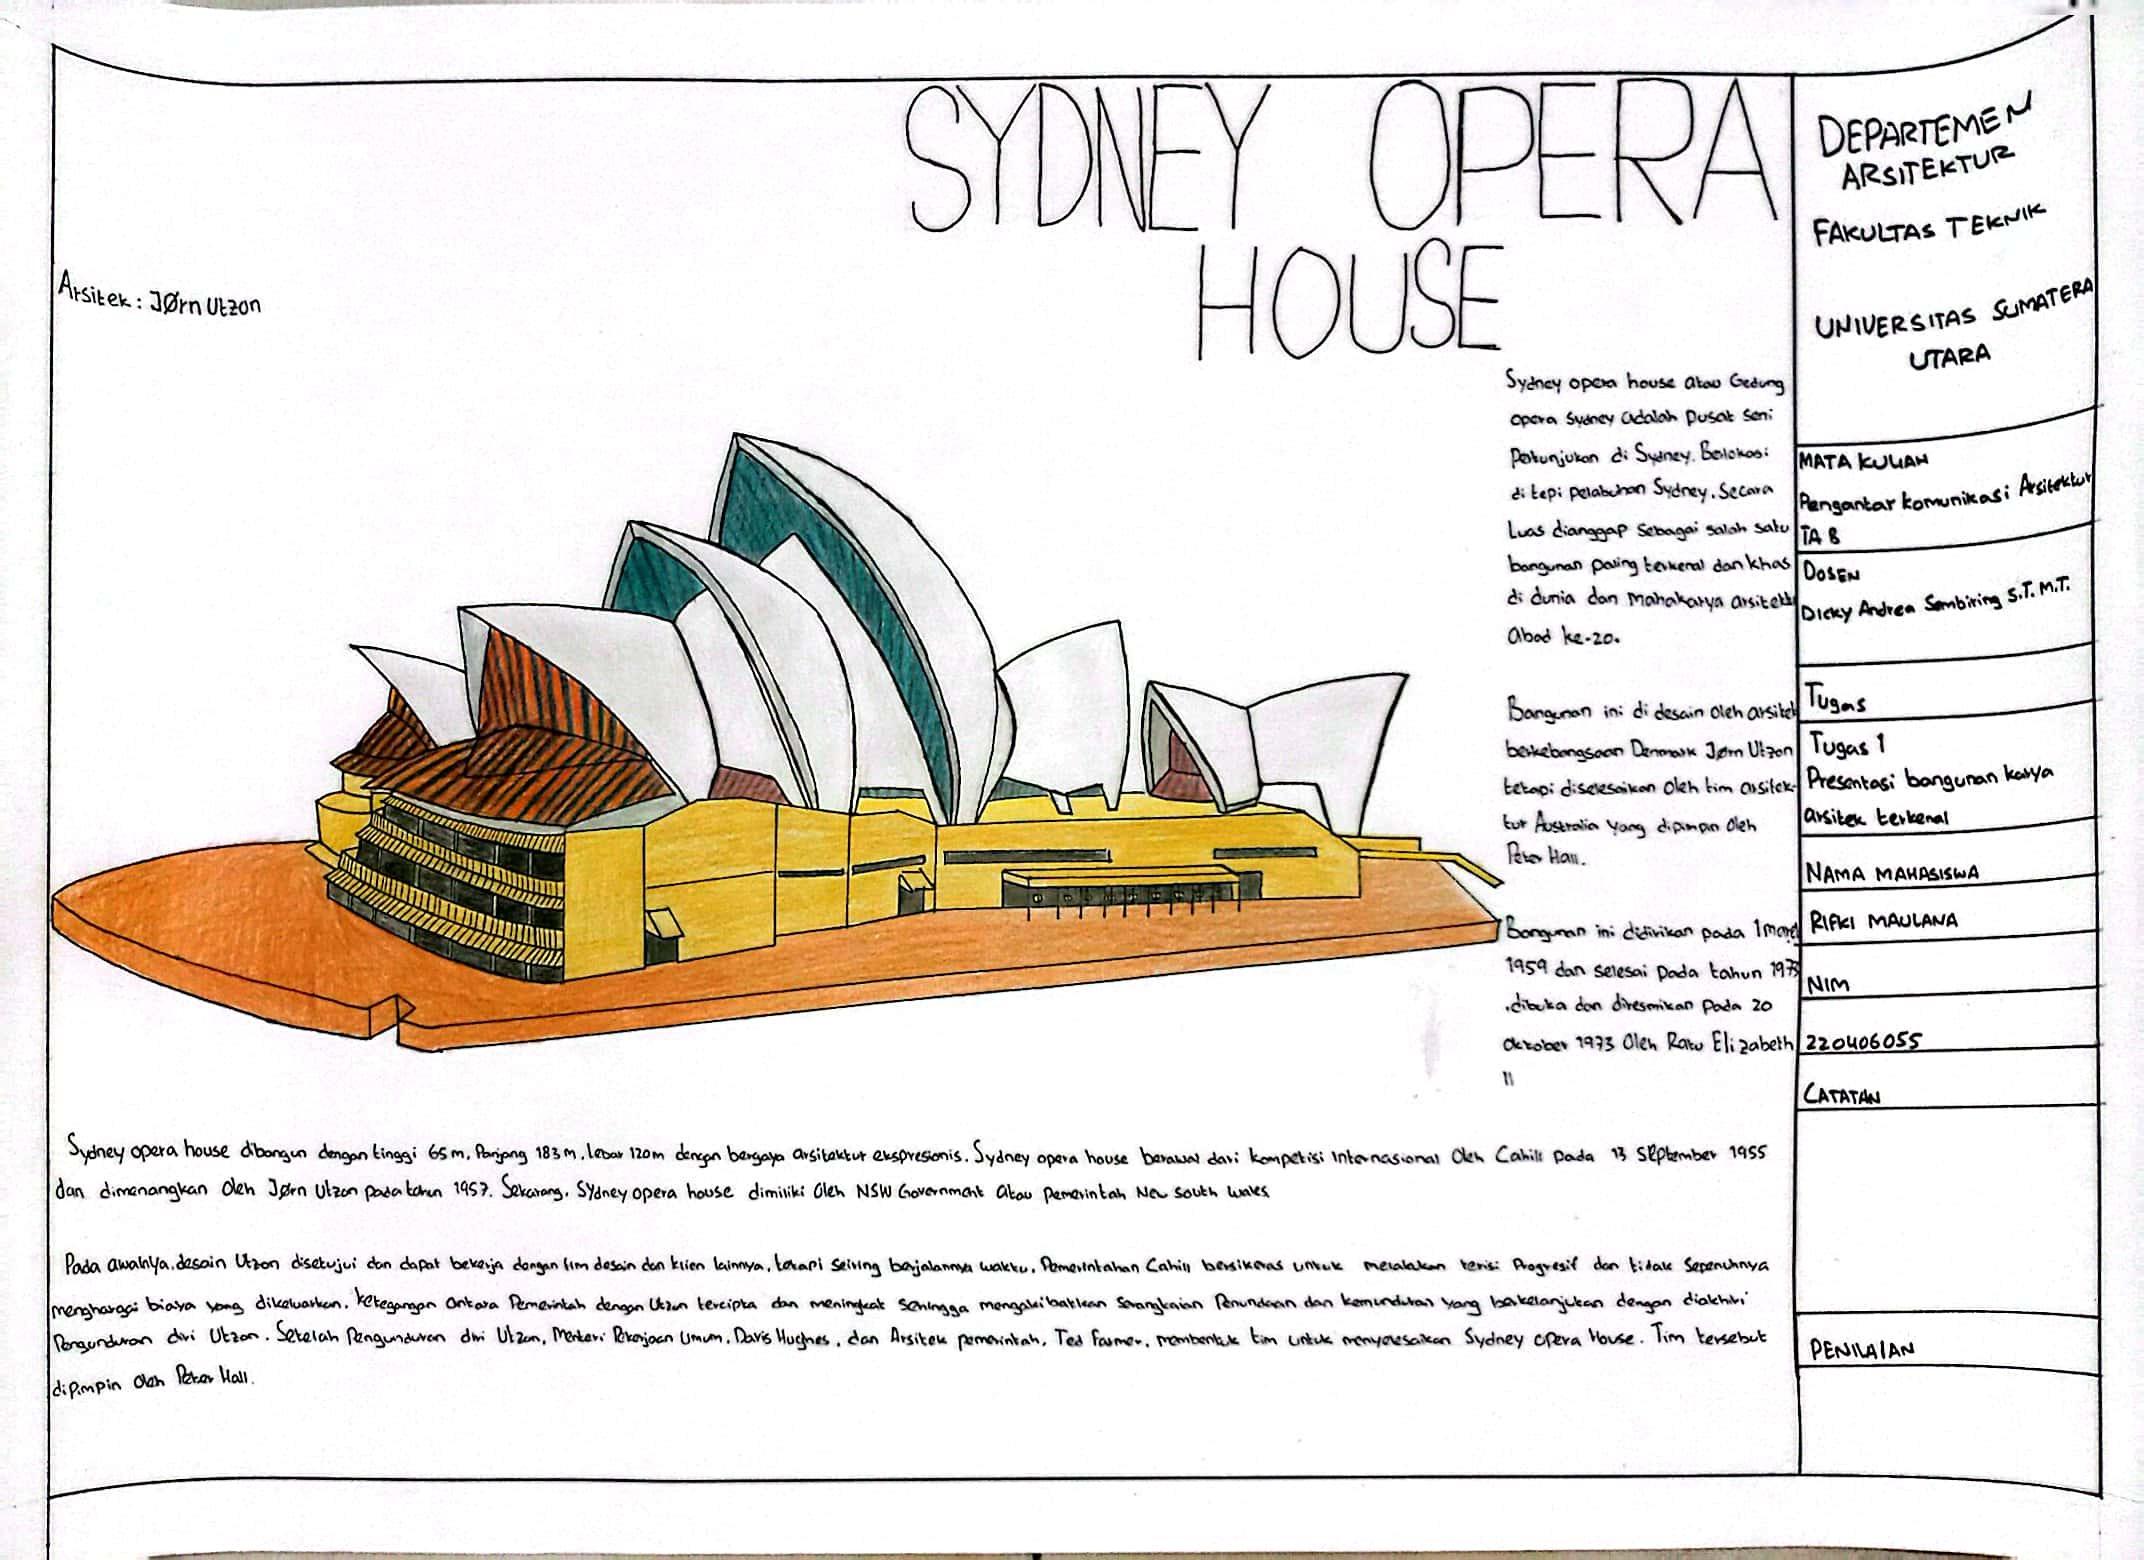 SYDNEY OPERA
HOUSE
Arsitek : JØrn Utzon
Sydney opera house atau Gedung
opera Sydney adalah pusat seni
Pertunjukan di Sydney. Berlokasi
di tepi pelabuhan Sydney. Secara
Luas dianggap sebagai salah satu
bangunan paling terkenal dan khas
di dunia dan mahakarya arsitektu
Abad ke-20.
Bangunan ini di desain oleh arsitek
berkebangsaan Denmark Jørn Utzon
tetapi diselesaikan oleh tim arsitek-
tur Australia yang dipimpin oleh
Peter Hall.
Bangunan ini didirikan pada 1 maret
1959 dan selesai pada tahun 1973
.dibuka dan diresmikan pada 20
Oktober 1973 Oleh Ratu Elizabeth
II
Sydney opera house dibangun dengan tinggi 65 m, Panjang 183 m, Lebar 120m dengan bergaya arsitektur ekspresionis. Sydney opera house berawal dari kompetisi Internasional Oleh Cahill pada 13 September 1955
dan dimenangkan oleh Jørn Utzon pada tahun 1957. Sekarang, Sydney opera house dimiliki oleh NSW Government Atau pemerintah New South Wales
Pada awalnya, desain Utzon disetujui dan dapat bekerja dengan tim desain dan klien lainnya, tetapi seiring berjalannya waktu, Pemerintahan Cahill bersikeras untuk melakukan Progresif dan tidak Sepenuhnya
menghargai biaya yang dikeluarkan. Ketegangan antara Pemerintah dengan Utzon tercipta dan meningkat Sehingga mengakibatkan Serangkaian Penundaan dan kemunduran yang berkelanjutan dengan diakhiri
Pengunduran diri Utzon. Setelah Pengunduran diri Utzon, Menteri Pekerjaan Umum, Davis Hughes, dan Arsitek pemerintah, Ted Farmer, membentuk tim untuk menyelesaikan Sydney Opera House. Tim tersebut
dipimpin oleh Peter Hall.
DEPARTEMEN
ARSITEKTUR
FAKULTAS TEKNIK
UNIVERSITAS SUMATERA
UTARA
MATA KULIAH
Pengantar komunikasi Arsitektur
TA B
DOSEN
Dicky Andrea Sembiring S.T. M.T.
Tugas
Tugas 1
Presentasi bangunan karya
arsitek terkenal
NAMA MAHASISWA
RIFKI MAULANA
NIM
220406055
CATATAN
PENILAIAN